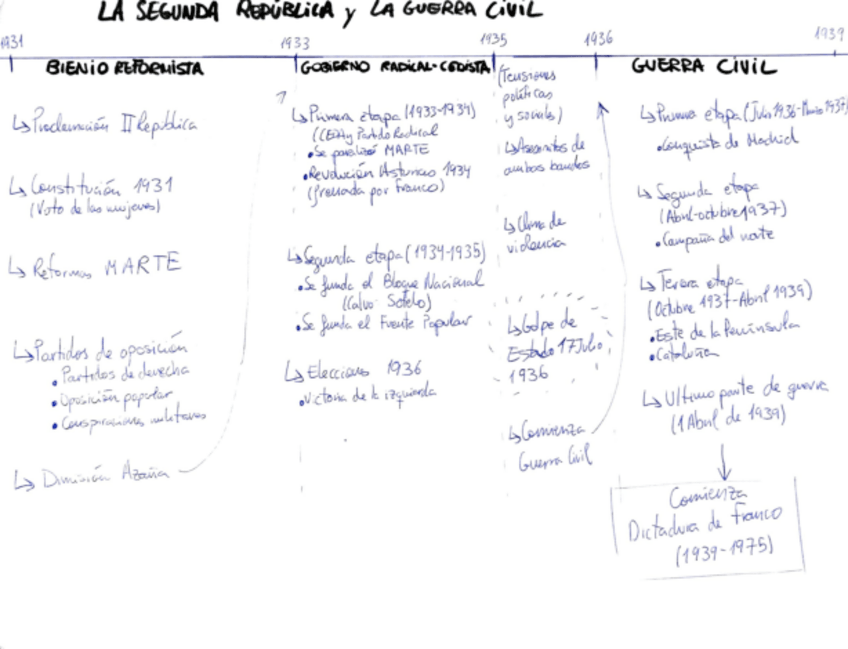 LA SEGUNDA REPÚBLICA y LA GUERRA CIVIL
1931
1933
1935
1936
1939
BIENIO REFORMISTA
↳ Proclamación II República
↳ Constitución 1931
(Voto de las mujeres)
↳ Reformas MARTE
↳ Partidos de oposición
• Partidos de derecha
• Oposición popular
• Conspiraciones militares
↳ Dimisión Azaña
GOBIERNO RADICAL-CEDISTA
↳ Primera etapa (1933-1934)
Partido Radical
• Se paralizó MARTE
• Revolución Asturias 1934
(frenada por Franco)
↳ Segunda etapa (1934-1935)
• Se funda el Bloque Nacional
(Calvo Sotelo)
• Se funda el Frente Popular
↳ Elecciones 1936
• Victoria de la izquierda
(Tensiones
políticas
y sociales)
↳ Asesinatos de
ambos bandos
↳ Clima de
violencia
↳ Golpe de
Estado 17 Julio
1936
↳ Comienza
Guerra Civil
GUERRA CIVIL
↳ Primera etapa (Julio 1936-Marzo 1937)
• Conquista de Madrid
↳ Segunda etapa
(Abril-octubre 1937)
• Campaña del norte
↳ Tercera etapa
(Octubre 1937-Abril 1939)
• Este de la Península
• Cataluña
↳ Ultimo parte de guerra
(1 Abril de 1939)
Comienza
Dictadura de Franco
(1939-1975)